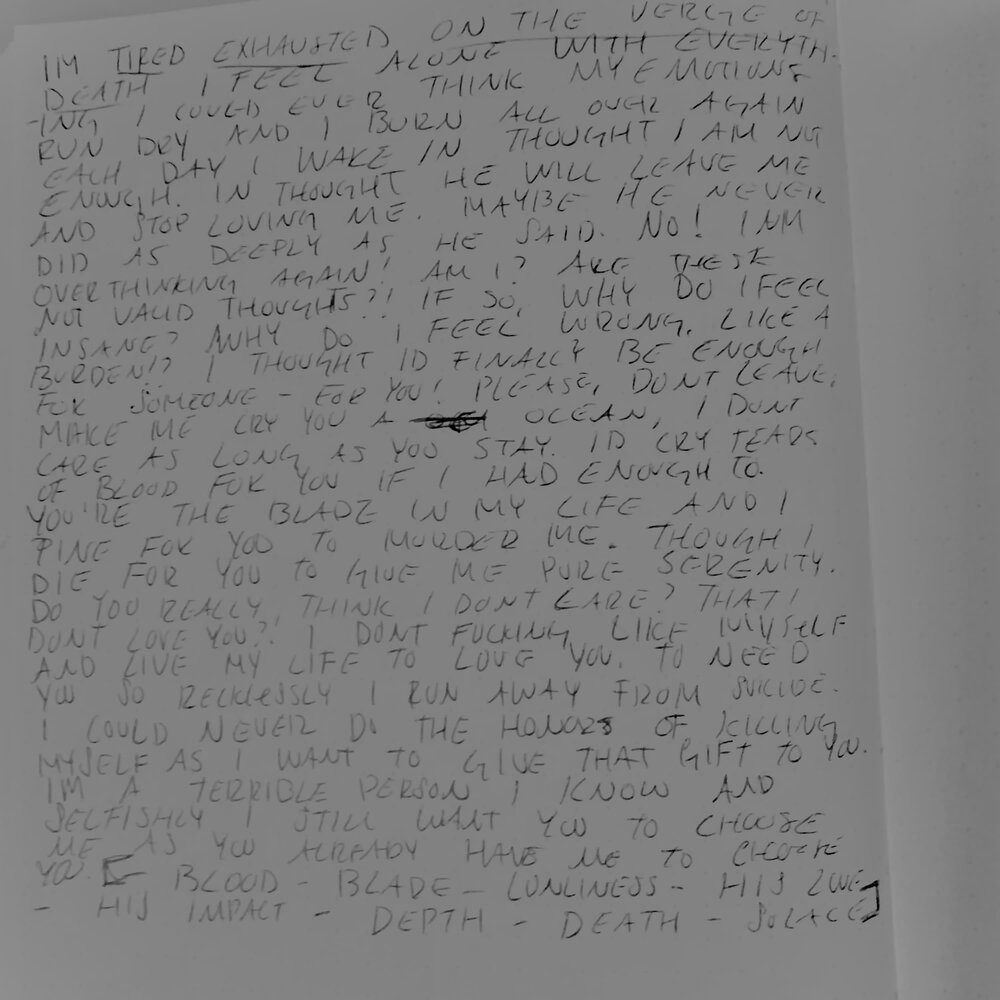 IM TIRED EXHAUSTED ON THE VERGE OF
DEATH I FEEL ALONE WITH EVERYTH-
-ING I COULD EVER THINK MY EMOTIONS
RUN DRY AND I BURN ALL OVER AGAIN
EACH DAY I WAKE IN THOUGHT I AM NOT
ENOUGH. IN THOUGHT HE WILL LEAVE ME
AND STOP LOVING ME. MAYBE HE NEVER
DID AS DEEPLY AS HE SAID. NO! I AM
OVERTHINKING AGAIN! AM I? ARE THESE
NOT VALID THOUGHTS?! IF SO, WHY DO I FEEL
INSANE? WHY DO I FEEL WRONG, LIKE A
BURDEN!? I THOUGHT ID FINALLY BE ENOUGH
FOR SOMEONE - FOR YOU! PLEASE, DONT LEAVE,
MAKE ME CRY YOU A OCEAN, I DONT
CARE AS LONG AS YOU STAY. ID CRY TEARS
OF BLOOD FOR YOU IF I HAD ENOUGH TO.
YOU'RE THE BLADE IN MY LIFE AND I
PINE FOR YOU TO MURDER ME. THOUGH I
DIE FOR YOU TO GIVE ME PURE SERENITY.
DO YOU REALLY, THINK I DONT CARE? THAT I
DONT LOVE YOU?! I DONT FUCKING LIKE MYSELF
AND LIVE MY LIFE TO LOVE YOU. TO NEED
YOU SO RECKLESSLY I RUN AWAY FROM SUICIDE.
I COULD NEVER DO THE HONORS OF KILLING
MYSELF AS I WANT TO GIVE THAT GIFT TO YOU.
IM A TERRIBLE PERSON I KNOW AND
SELFISHLY I STILL WANT YOU TO CHOOSE
ME AS YOU ALREADY HAVE ME TO CHOOSE
YOU. [- BLOOD - BLADE - LONLINESS - HIS LOVE
- HIS IMPACT - DEPTH - DEATH - SOLACE]